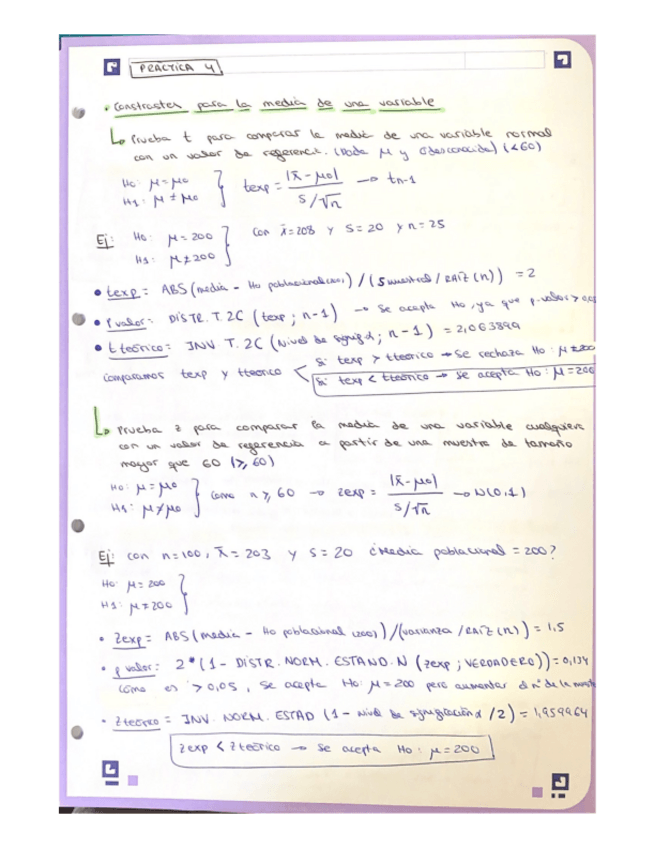 PRÁCTICA 4
• Constrastes para la media de una variable
↳ Prueba t para comparar la media de una variable normal
con un valor de referencia. (Dada μ y σ desconocida) (<60)
H0: μ = μ0
H1: μ ≠ μ0 } texp = |x̄ - μ0| / s/√n → tn-1
Ej: H0: μ = 200
H1: μ ≠ 200 } Con x̄ = 208 y S = 20 y n = 25
• texp = ABS (media - H0 poblacional) / (S muestral / RAÍZ (n)) = 2
• P valor = DISTR. T. 2C (texp ; n-1) → Se acepta H0, ya que p-valor > 0,05
• t teórico = INV. T. 2C (Nivel de signif α ; n-1) = 2,063899
Comparamos texp y tteórico < Si texp > tteórico → Se rechaza H0: μ ≠ 200
Si texp < tteórico → Se acepta H0: μ = 200
↳ Prueba z para comparar la media de una variable cualquiera
con un valor de referencia a partir de una muestra de tamaño
mayor que 60 (≥ 60)
H0: μ = μ0
H1: μ ≠ μ0 } Como n ≥ 60 → zexp = |x̄ - μ0| / s/√n → N(0,1)
Ej: con n=100, x̄ = 203 y S = 20 ¿Media poblacional = 200?
H0: μ = 200
H1: μ ≠ 200 }
• Zexp = ABS (media - H0 poblacional (200)) / (varianza / RAÍZ (n)) = 1,5
• p valor: 2*(1 - DISTR. NORM. ESTAND. N (zexp ; VERDADERO)) = 0,134
Como es > 0,05, se acepta H0: μ = 200 pero aumentar el nº de la muestra
• Z teórico = INV. NORM. ESTAD (1 - nivel de significación α / 2) = 1,959964
Zexp < Z teórico → Se acepta H0: μ = 200